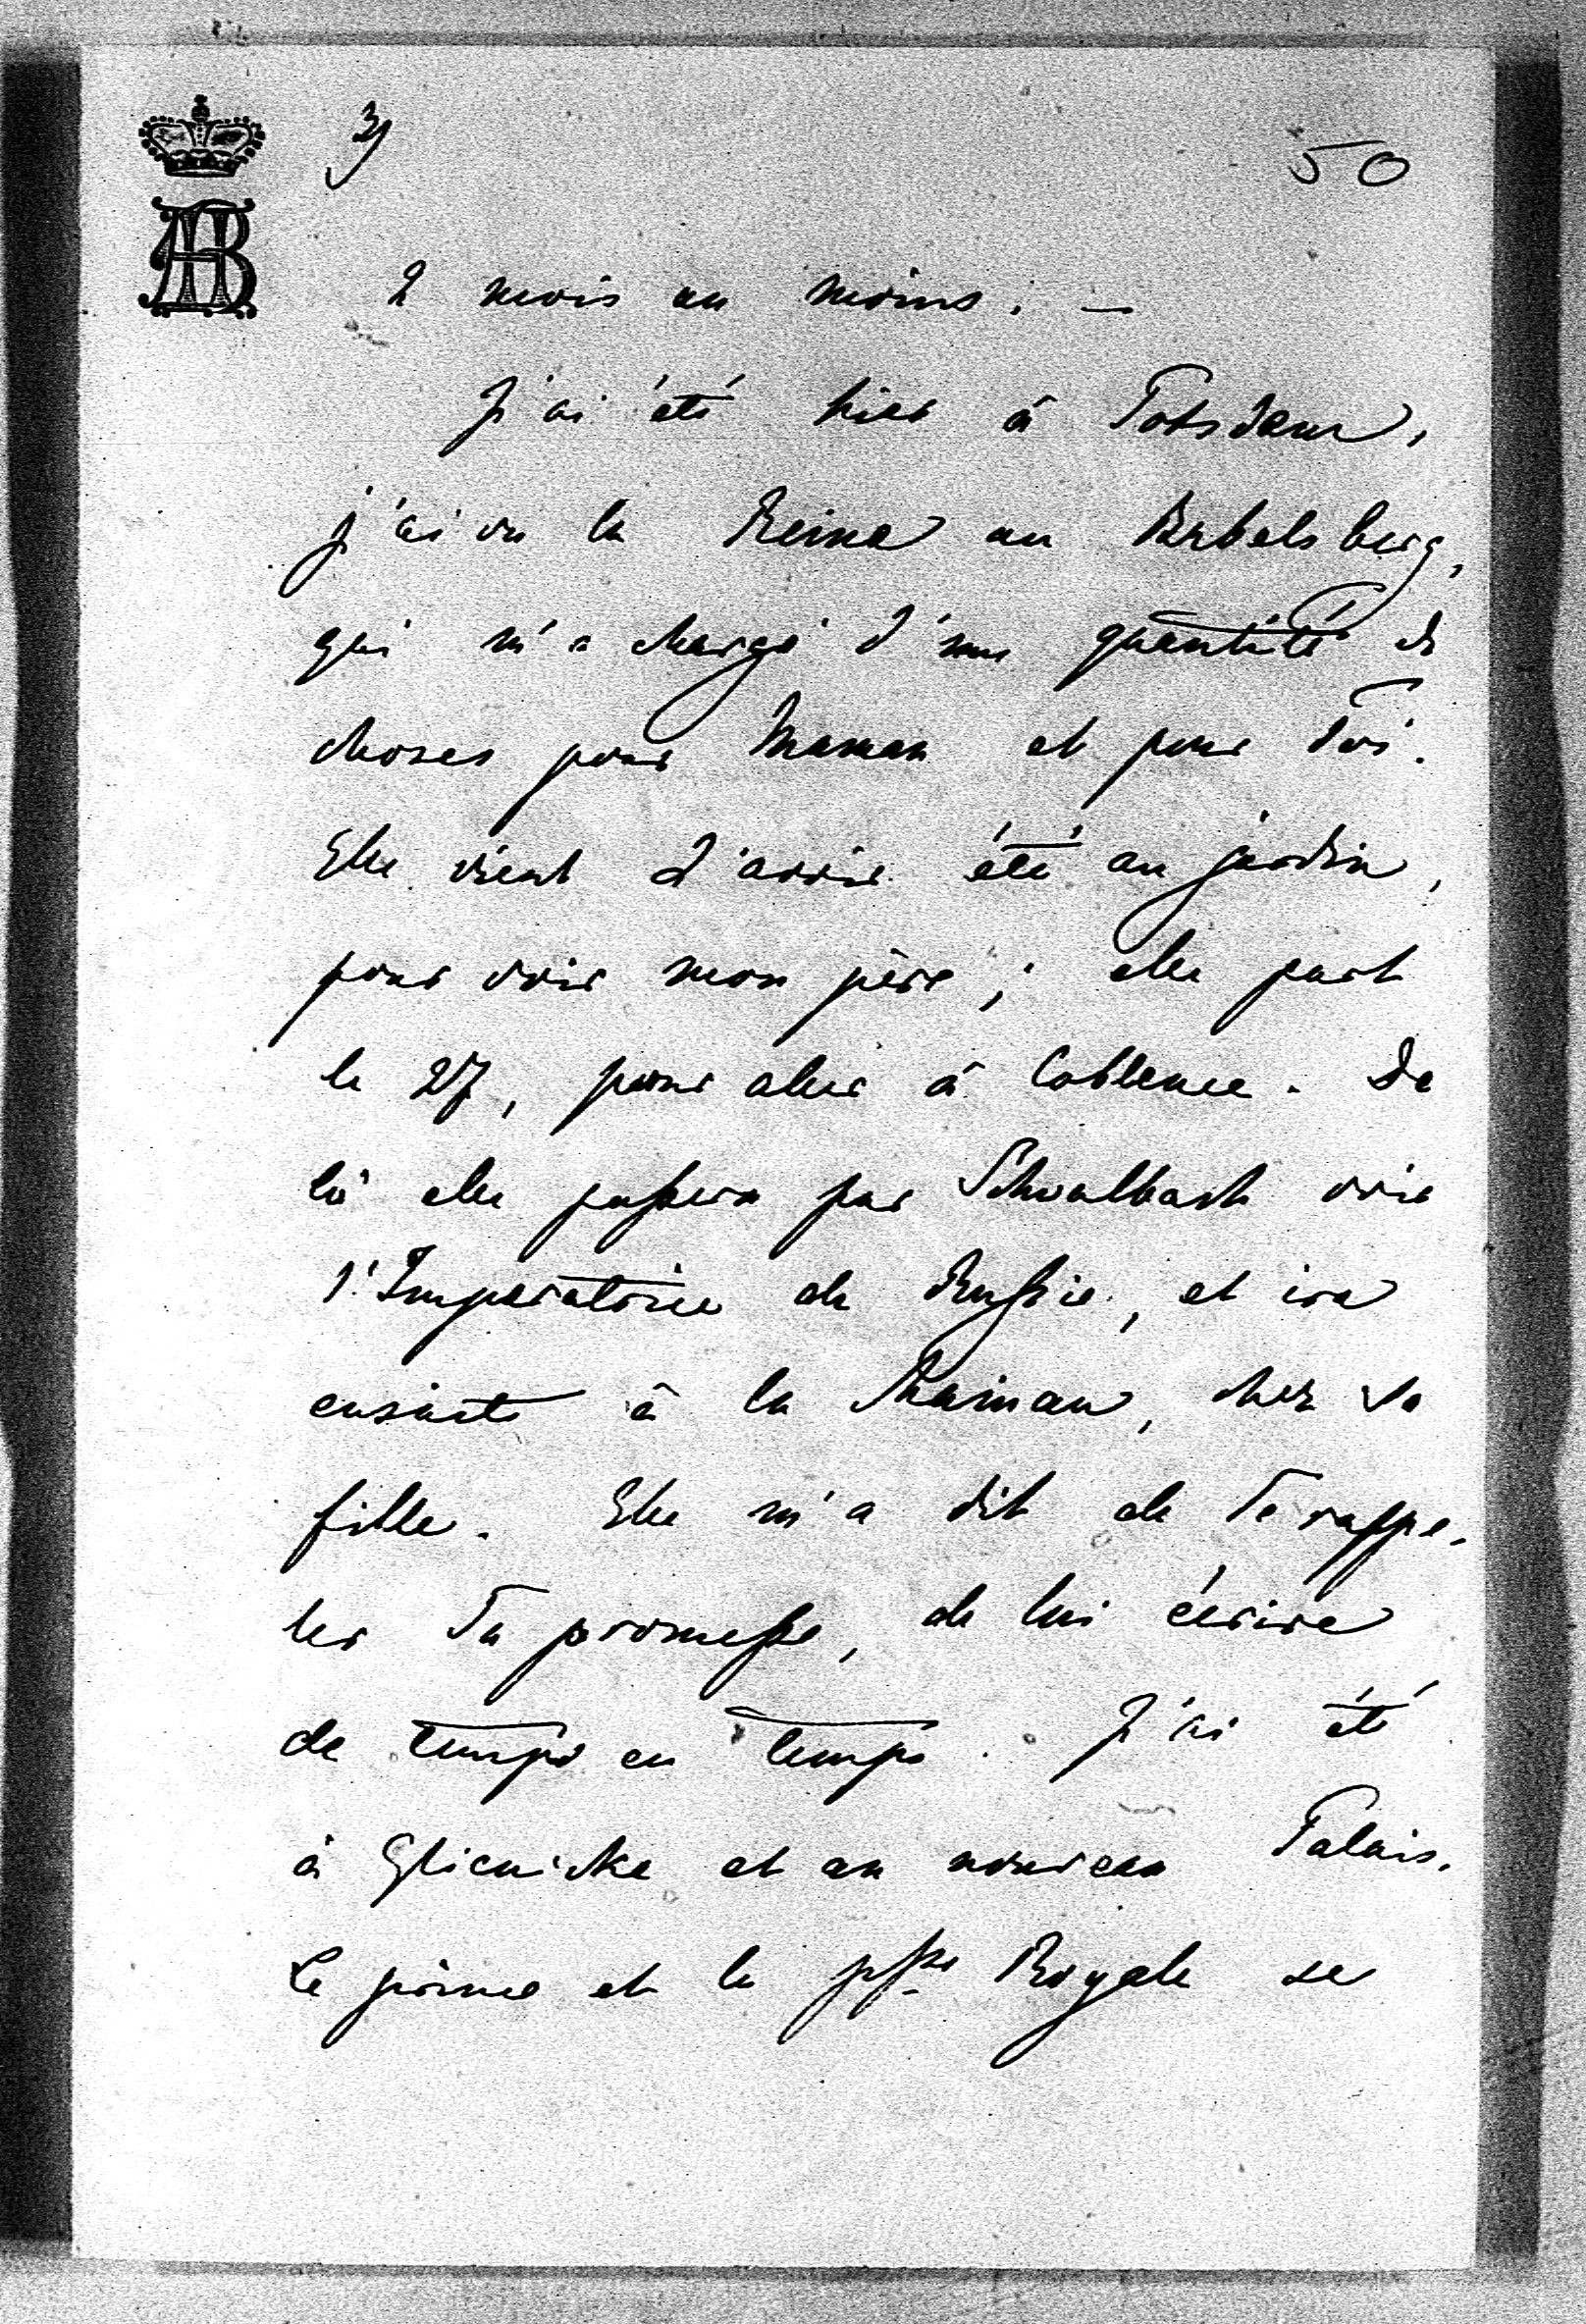 3)
50
AB
2 mois au moins. —
J'ai été hier à Potsdam,
j'ai vu la Reine au Babelsberg,
qui m'a chargé d'une quantité de
choses pour Maman et pour Toi.
Elle vient d'avoir été au jardin,
pour voir mon père; elle part
le 27, pour aller à Coblence. De
là elle passera par Schwalbach voir
l'Imperatrice de Russie, et ira
ensuite à la Mainau, chez sa
fille. Elle m'a dit de Te rappe-
ler Ta promesse, de lui écrire
de temps en temps. J'ai été
à Glienicke et au nouveau Palais.
Le prince et la psse Royale se